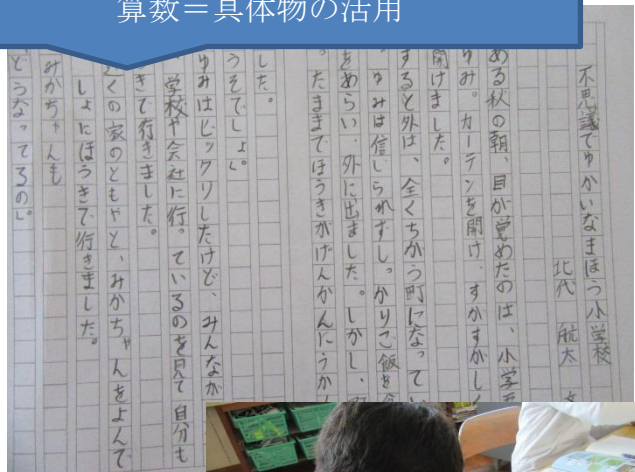 算数＝具体物の活用
不思議でゆかいなまほう小学校
北代 航太
ある秋の朝、目が覚めたのは、小学
ゆみ。カーテンを開け、すがすがしく
開けました。
すると外は、全くちがう町になってい
ゆみは信じられずしっかりご飯を
をあらい、外に出ました。しかし、
たままでほうきがげんかんにうか
した。
うそでしょ。
ゆみはビックリしたけど、みんなか
学校や会社に行っているのを見て自分も
きで行きました。
くの家のともやと、みかちゃんをよんで
しょにほうきで行きました。
みかちゃんも
どうなってるの」。